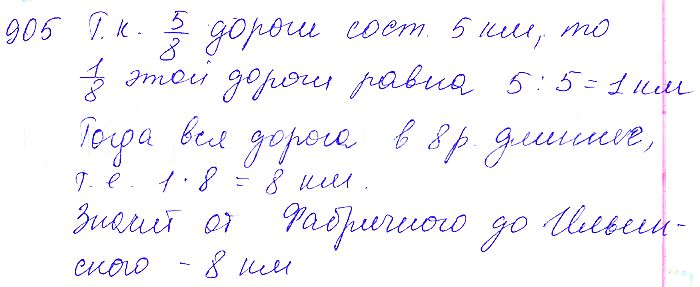 905 Т.к. 5/8 дороги сост. 5 км, то
1/8 этой дороги равна 5 : 5 = 1 км
Тогда вся дорога в 8 р. длиннее,
т.е. 1 · 8 = 8 км.
Значит от Фабричного до Ильин-
ского - 8 км